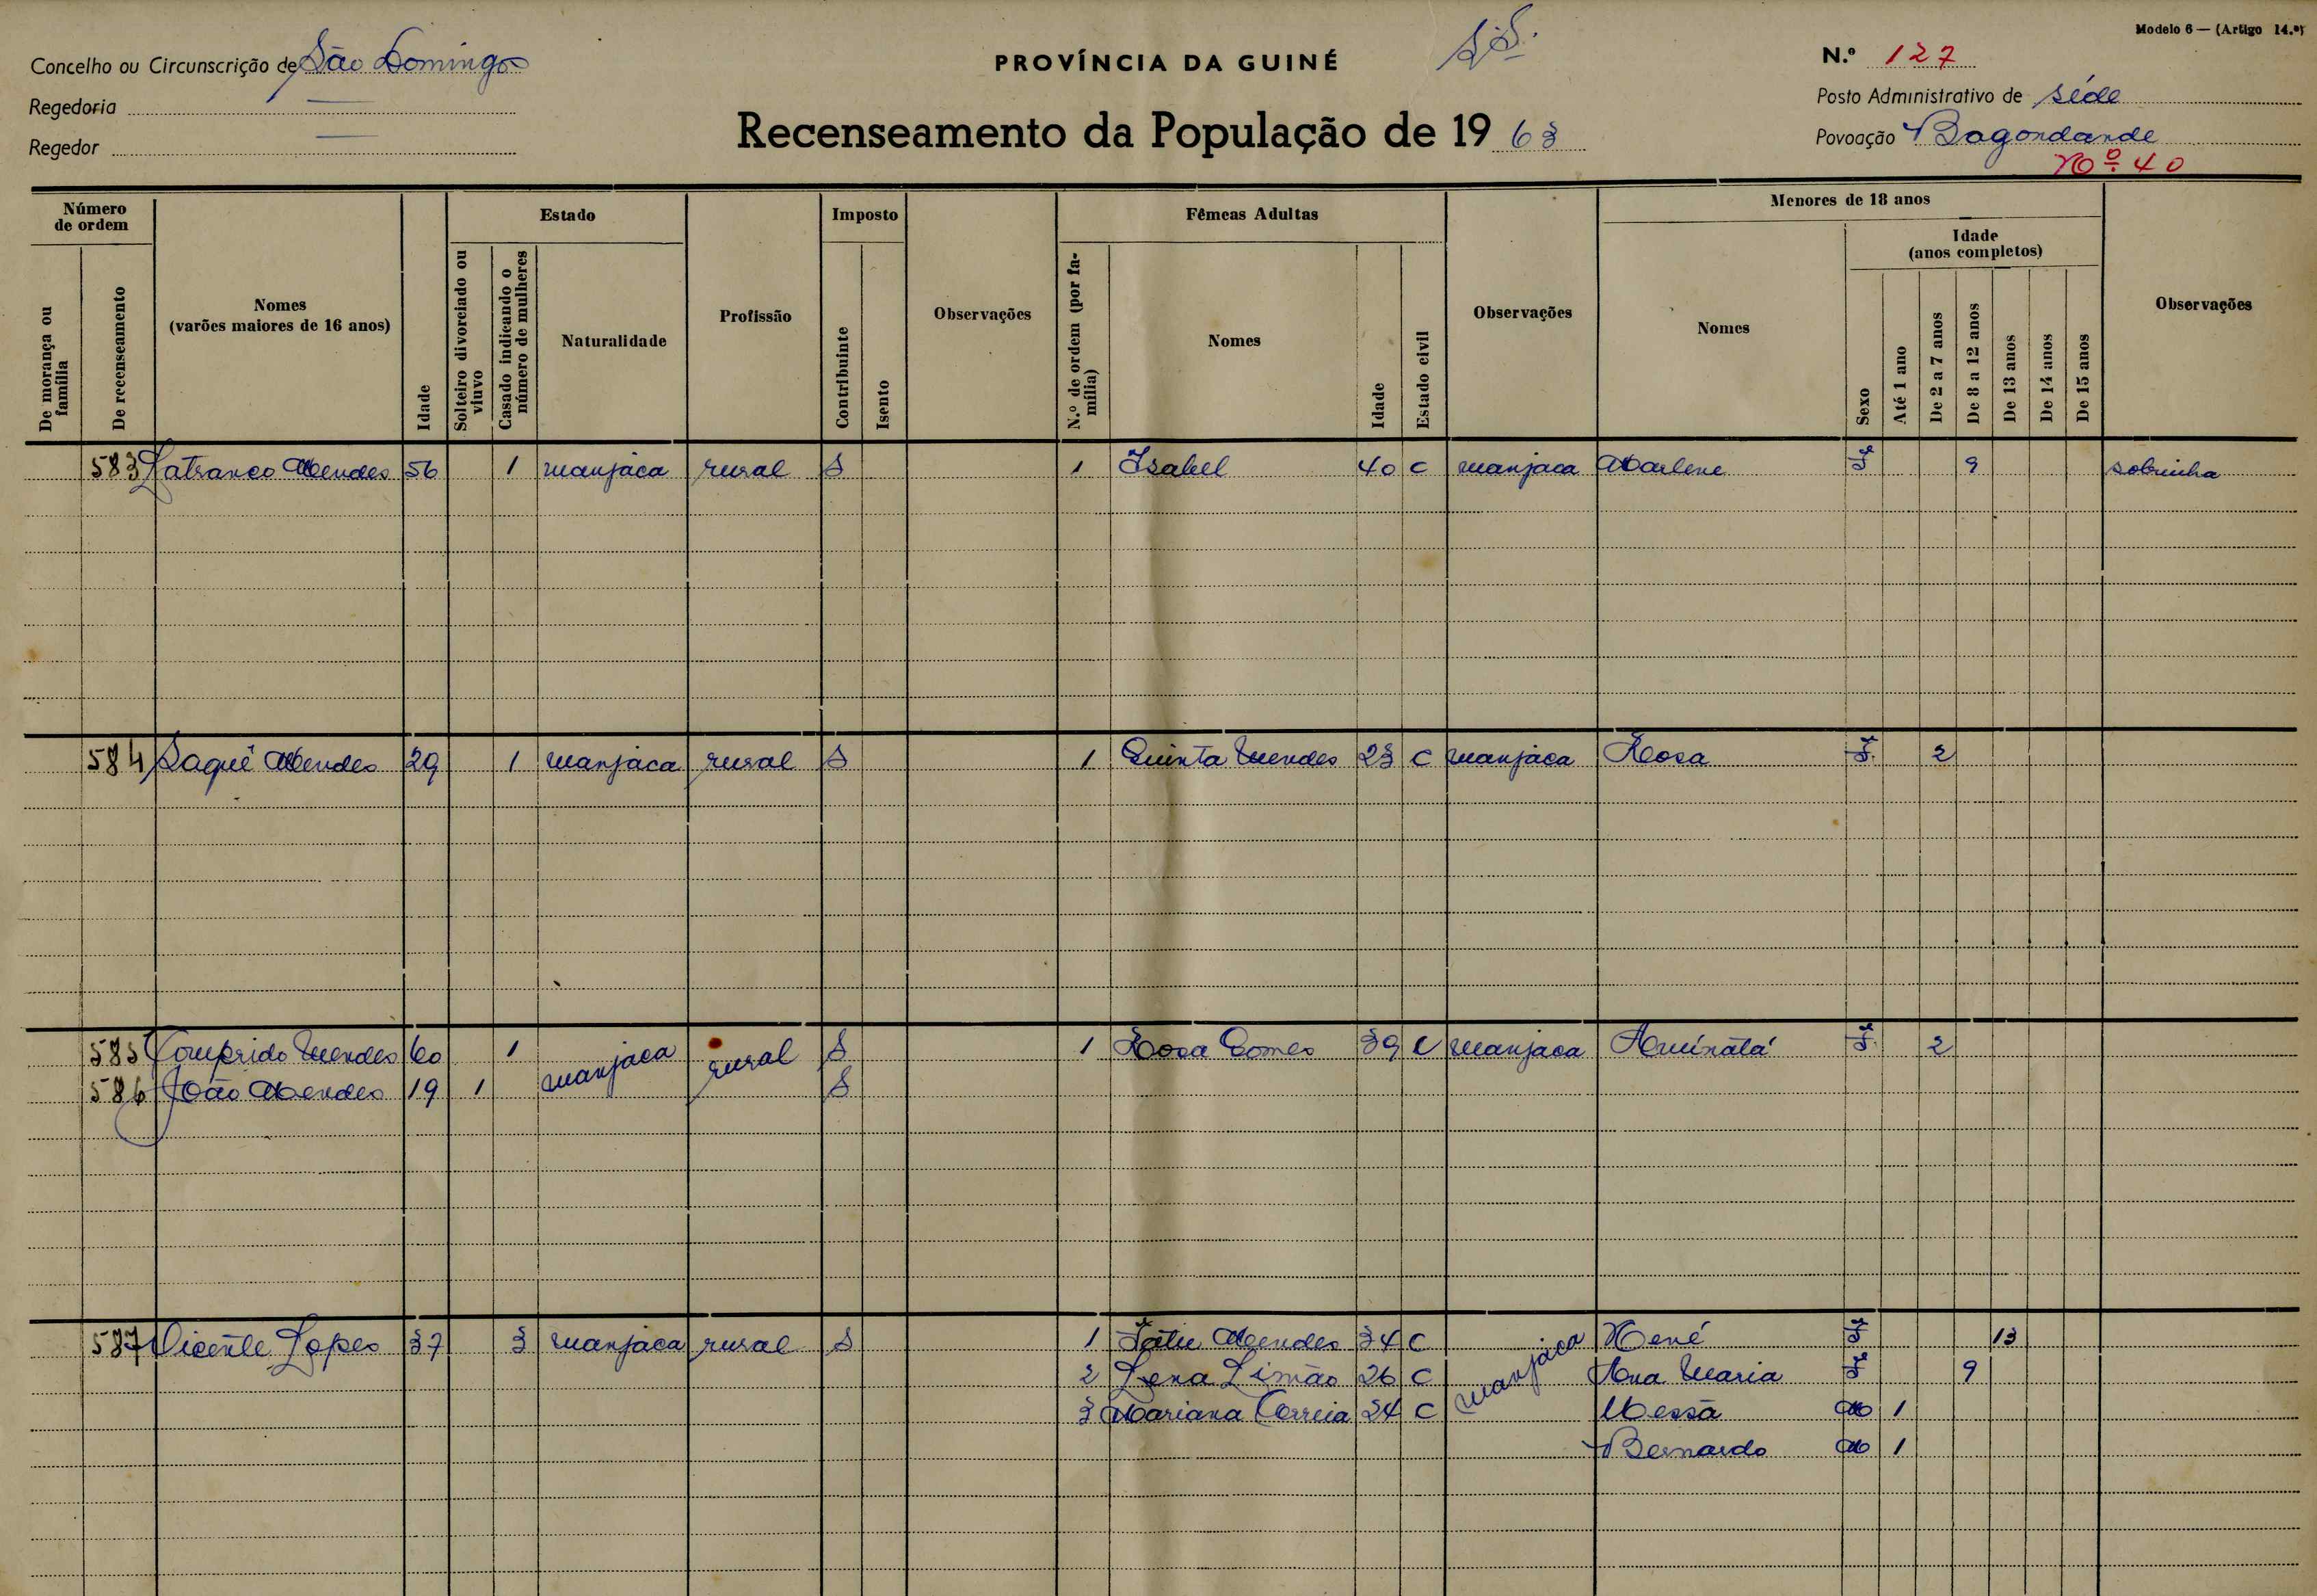 Modelo 6 — (Artigo 14.º)
Concelho ou Circunscrição de São Domingos
PROVÍNCIA DA GUINÉ
S.S.
N.º 127
Regedoria —
Posto Administrativo de séde
Recenseamento da População de 19 63
Regedor —
Povoação Bagondande
Nº 40
Número de ordem
De morança ou família
De recenseamento
Nomes (varões maiores de 16 anos)
Idade
Estado
Solteiro divorciado ou viuvo
Casado indicando o número de mulheres
Naturalidade
Profissão
Imposto
Contribuinte
Isento
Observações
Fêmeas Adultas
N.º de ordem (por família)
Nomes
Idade
Estado civil
Observações
Menores de 18 anos
Nomes
Sexo
Idade (anos completos)
Até 1 ano
De 2 a 7 anos
De 8 a 12 anos
De 13 anos
De 14 anos
De 15 anos
Observações
583 Latranco Mendes 56 1 manjaca rural S 1 Isabel 40 C manjaca Marlene F 9 sobrinha
584 Saquê Mendes 29 1 manjaca rural S 1 Quinta Mendes 23 C manjaca Rosa F. 2
585 Comprido Mendes 60 1 manjaca rural S 1 Rosa Gomes 39 C manjaca Aminatá F. 2
586 João Mendes 19 1 S
587 Vicente Lopes 37 3 manjaca rural S 1 Fatu Mendes 34 C manjaca Nené F 13
2 Lena Limão 26 C Ana Maria F 9
3 Mariana Correia 24 C Messã M 1
Bernardo M 1